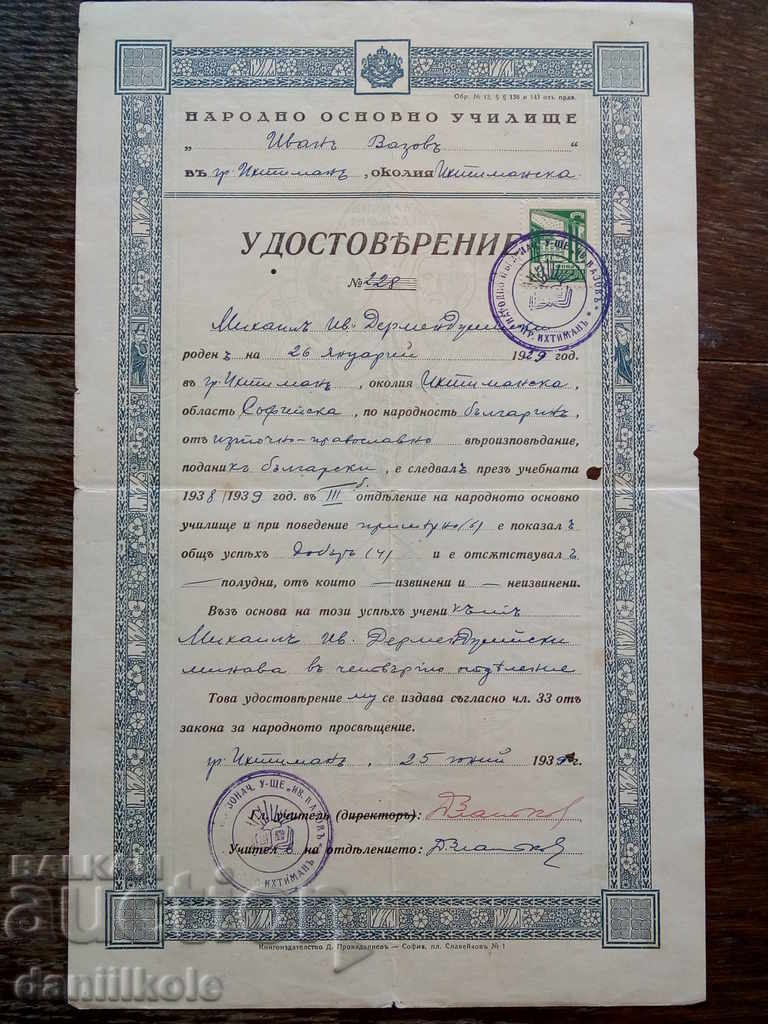 Обр. № 12, § § 136 и 141 отъ прав.
НАРОДНО ОСНОВНО УЧИЛИЩЕ
„ Иванъ Вазовъ “
въ гр. Ихтиманъ, околия Ихтиманска.
УДОСТОВѢРЕНИЕ
№ 228
Михаилъ Ив.
роденъ на 26 януарий 1929 год.
въ гр. Ихтиманъ, околия Ихтиманска,
область Софийска, по народность българинъ,
отъ източно-православно вѣроизповѣдание,
поданикъ български, е следвалъ презъ учебната
1938/1939 год. въ III б. отдѣление на народното основно
училище и при поведение примѣрно (6) е показалъ
общъ успѣхъ добъръ (4) и е отсѫтствувалъ
— полудни, отъ които — извинени и — неизвинени.
Възъ основа на този успѣхъ ученикътъ
Михаилъ Ив. Дермендждийски
минава въ четвърто отдѣление
Това удостовѣрение му се издава съгласно чл. 33 отъ
закона за народното просвѣщение.
гр. Ихтиманъ, 25 юний 1939 г.
Гл. учитель (директоръ):
Учителъ на отдѣлението:
НАРОДНО НАЧ. У-ЩЕ „ИВ. ВАЗОВЪ“ * ГР. ИХТИМАНЪ *
ОНАЧ. У-ЩЕ „ИВ. ВАЗОВЪ“ * ИХТИМАНЪ
Книгоиздателство Д. Проваделиевъ — София, пл. Славейковъ № 1
BALKAN
auction
daniilkole